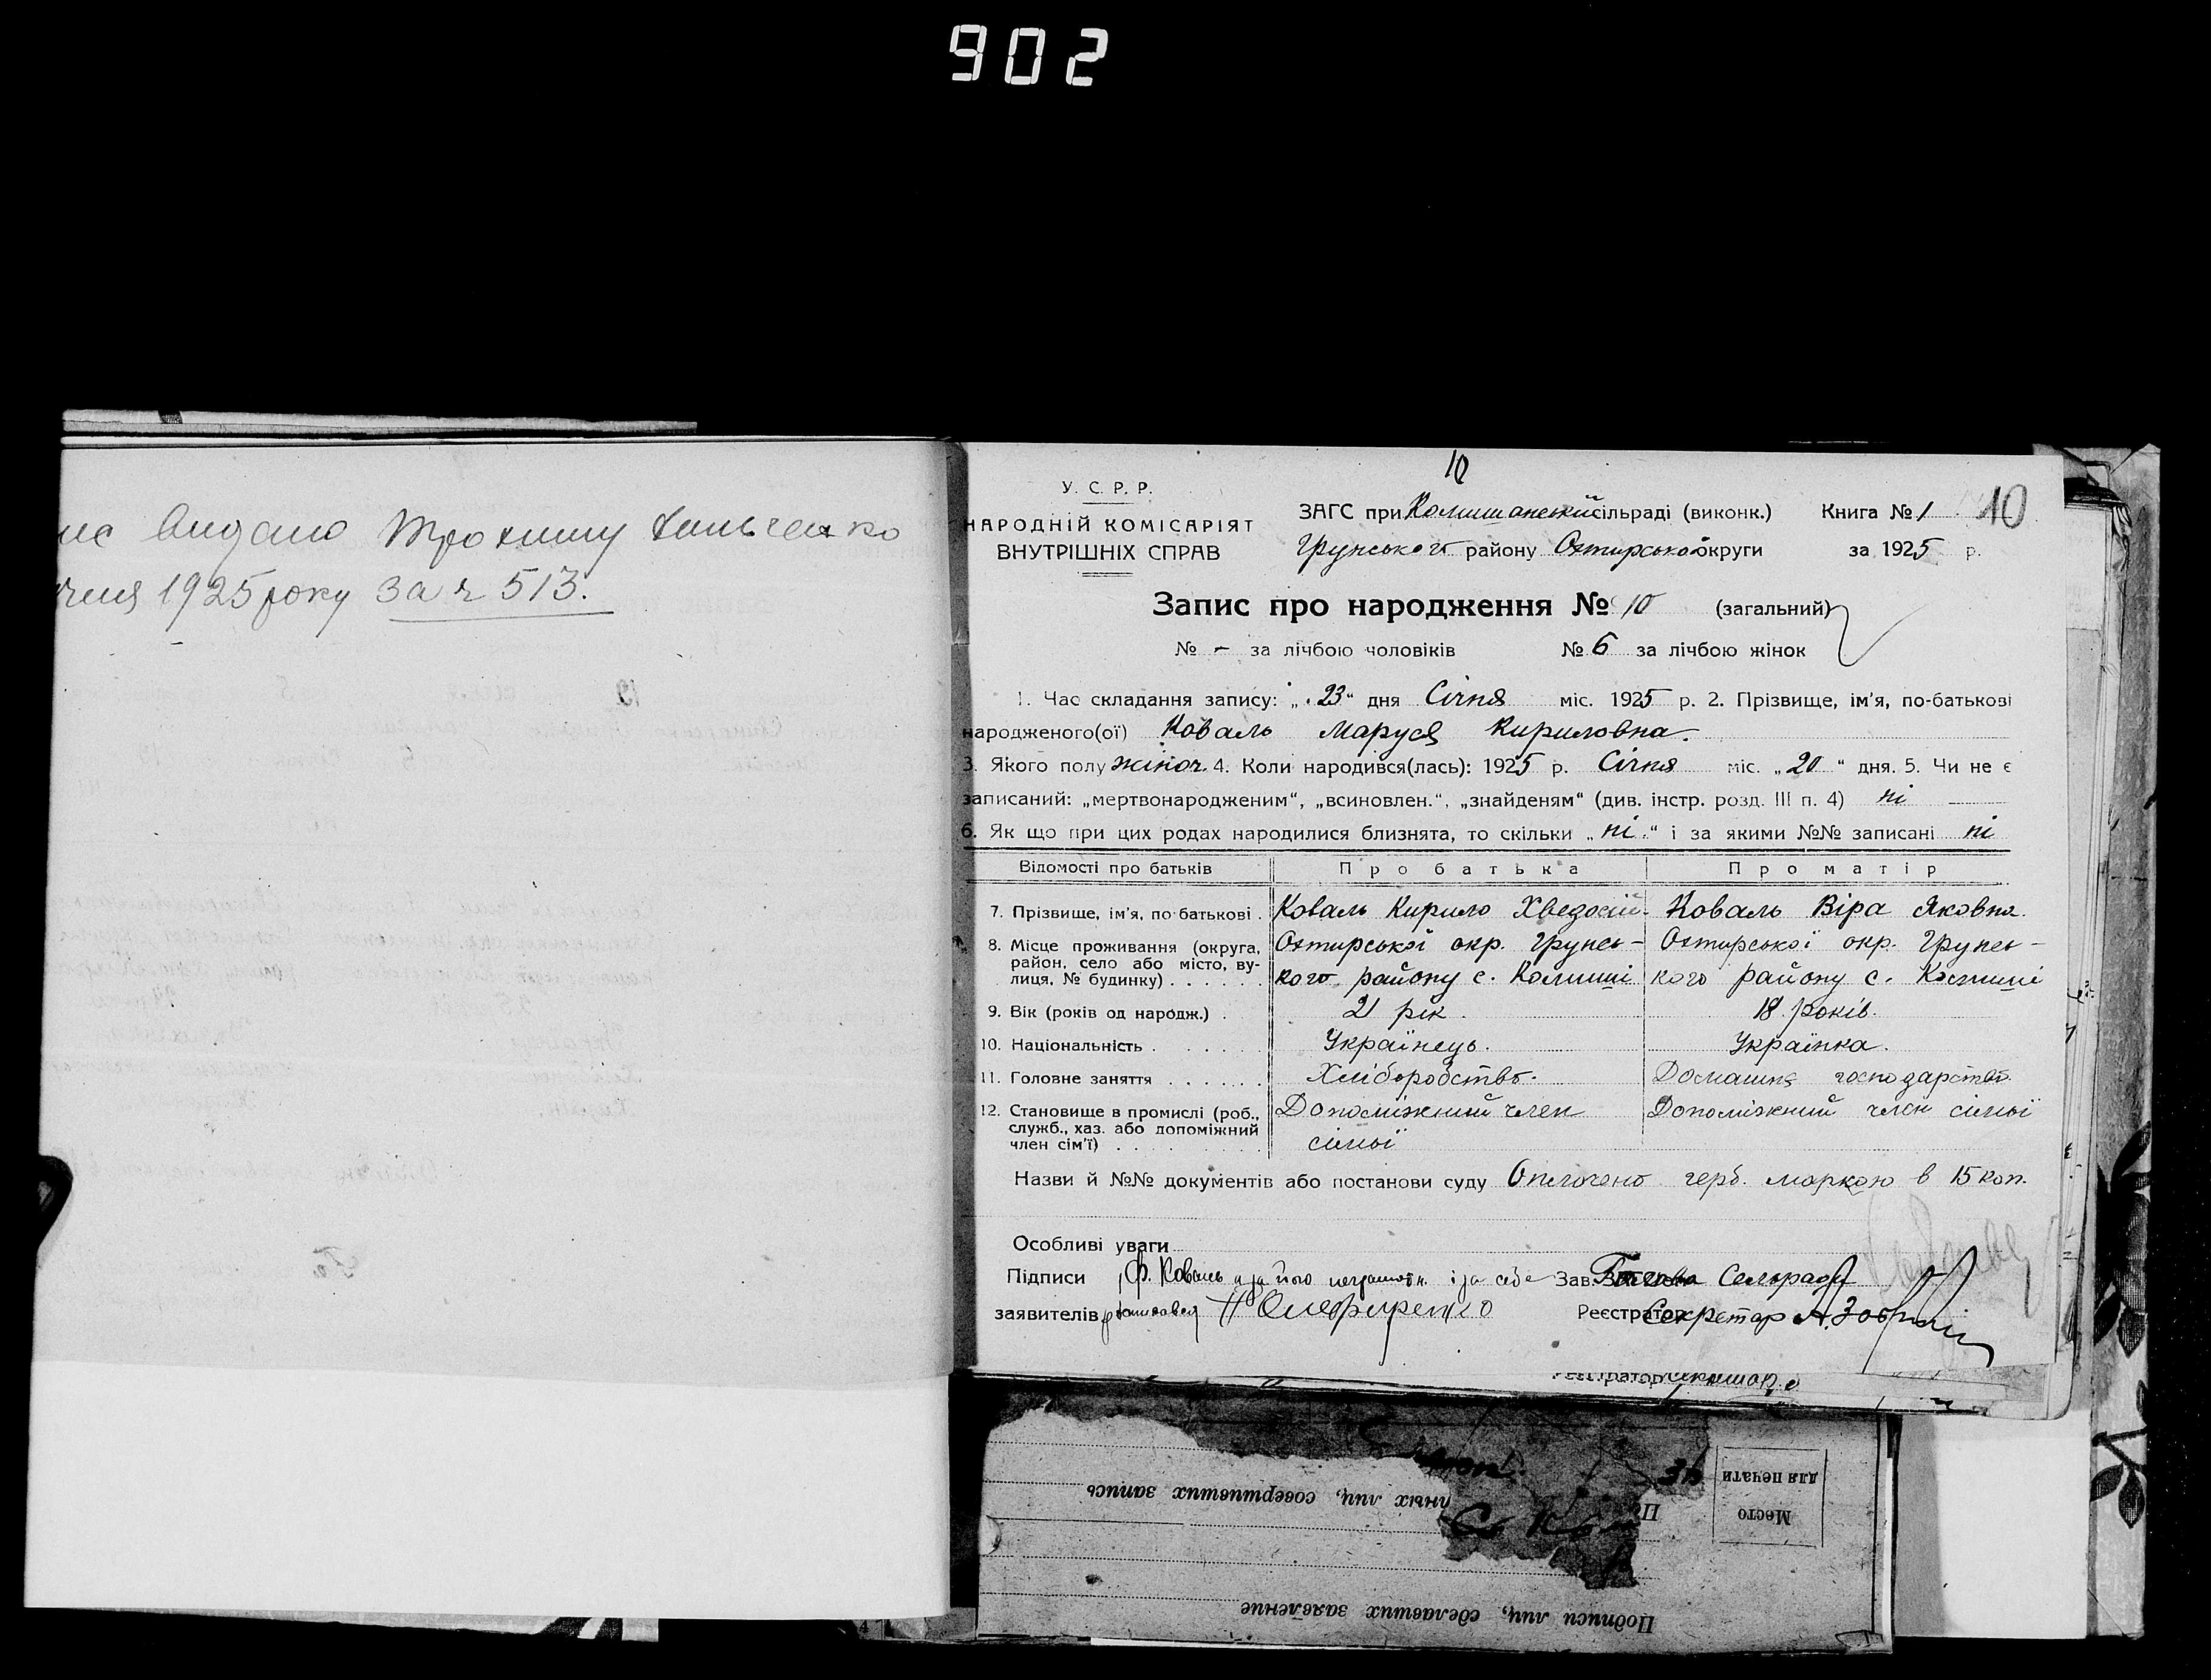 902
видано Трохиму
1925 року за ч 513.
10
У. С. Р. Р.
НАРОДНІЙ КОМІСАРІЯТ
ВНУТРІШНІХ СПРАВ
ЗАГС при Комишанській сільраді (виконк.) Книга № 1 10
Грунського району Охтирської округи за 1925 р.
Запис про народження № 10 (загальний)
№ - за лічбою чоловіків № 6 за лічбою жінок
1. Час складання запису: „23“ дня Січня міс. 1925 р. 2. Прізвище, ім'я, по-батькові
народженого(ої) Коваль Маруся Кириловна.
3. Якого полу жіноч. 4. Коли народився(лась): 1925 р. Січня міс. „20“ дня. 5. Чи не є
записаний: „мертвонародженим“, „всиновлен.“, „знайденям“ (див. інстр. розд. III п. 4) ні
6. Як що при цих родах народилися близнята, то скільки „ні“ і за якими №№ записані ні
Відомості про батьків Про батька Про матір
7. Прізвище, ім'я, по-батькові . Коваль Кирило Хведосій. Коваль Віра Яковна.
8. Місце проживання (округа, район, село або місто, вулиця, № будинку) . . . . . . Охтирської окр. Грунсь- Охтирської окр. Грунсь-
кого району с. Комиші кого району с. Комиші
9. Вік (років од народж.) . 21 рік. 18 років.
10. Національність . . . . . . Українець. Українка.
11. Головне заняття . . . . . . Хліборобство. Домашнє господарство.
12. Становище в промислі (роб., служб., хаз. або допоміжний член сім'ї) . . . . . . . . Допоміжний член Допоміжний член сімьї
сімьї
Назви й №№ документів або постанови суду Оплочено герб. маркою в 15 коп.
Особливі уваги
Підписи Ф. Коваль а за його неграмотн. і за себе Зав. Голова Сельради
заявителів росписався Н Олефиренко Реєстратор Секретар А.
Реєстратор
Место
для печати
лиц, совершивших запись
Подписи лиц, сделавших заявление